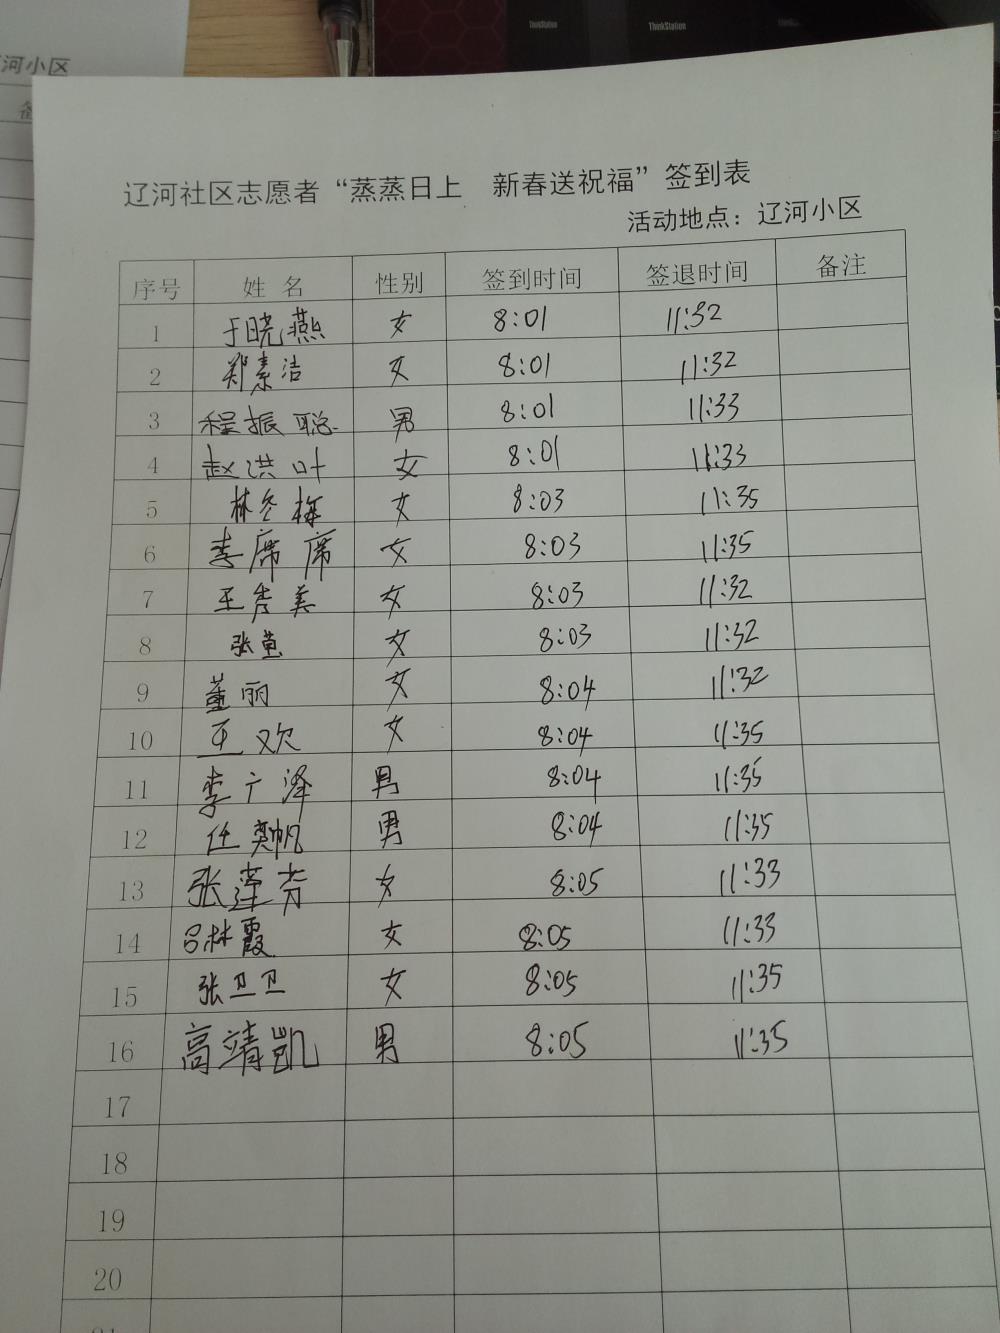 ThinkStation
ThinkStation
河小区
辽河社区志愿者“蒸蒸日上 新春送祝福”签到表
活动地点：辽河小区
序号 姓名 性别 签到时间 签退时间 备注
1 于晓燕 女 8:01 11:32
2 郑素洁 女 8:01 11:32
3 程振聪 男 8:01 11:33
4 赵洪叶 女 8:01 11:33
5 林冬梅 女 8:03 11:35
6 李席席 女 8:03 11:35
7 王秀美 女 8:03 11:32
8 张 女 8:03 11:32
9 董丽 女 8:04 11:32
10 王欢 女 8:04 11:35
11 李广泽 男 8:04 11:35
12 任奕帆 男 8:04 11:35
13 张莲芳 女 8:05 11:33
14 吕林霞 女 8:05 11:33
15 张卫卫 女 8:05 11:35
16 高靖凯 男 8:05 11:35
17
18
19
20